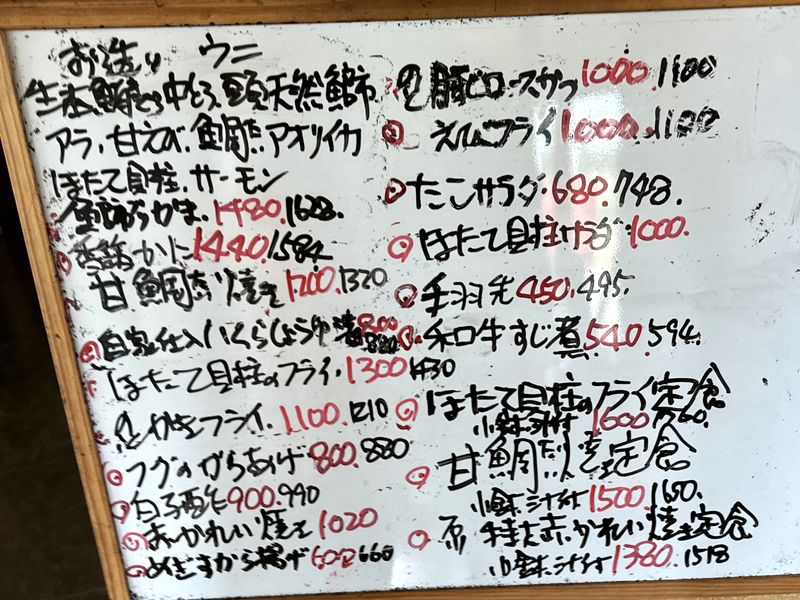 お造り ウニ
生本鮪 中とろ 天然鰤
アラ、甘えび、鯛、アオリイカ
ほたて貝柱、サーモン
かま、1480.1628.
かに1440.1584
甘鯛 焼き1200.1320
自家仕入いくらしょうゆ漬800 880
ほたて貝柱のフライ.1300 1430
かきフライ.1100.1210
フグのからあげ800.880
白子酢900.990
赤かれい焼き1020
めぎすから揚げ600 660
豚ヒロースかつ1000.1100
えびフライ1000.1100
たこサラダ.680.748.
ほたて貝柱サラダ1000.
手羽先450.495.
和牛すじ煮540.594.
ほたて貝柱のフライ定食
小鉢 汁付1600
甘鯛 焼き定食
小鉢 汁付1500 1650.
特大赤かれい焼き定食
小鉢 汁付1380.1518